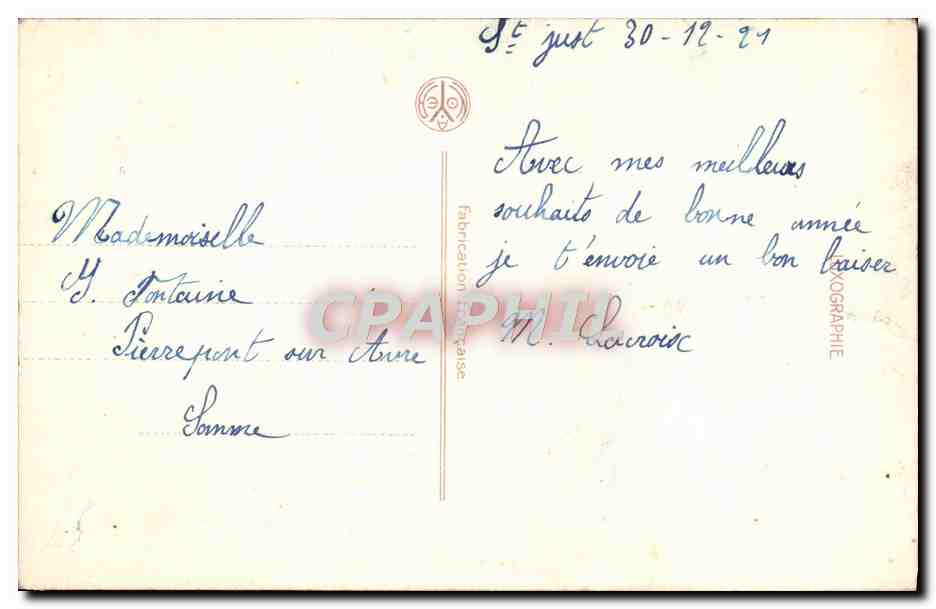 St just 30-12-21
Avec mes meilleurs
souhaits de bonne année
je t'envoie un bon baiser
M. Lacroix
Mademoiselle
Y. Fontaine
Pierrepont sur Avre
Somme
Fabrication Française
LUXOGRAPHIE
CPAPHIL